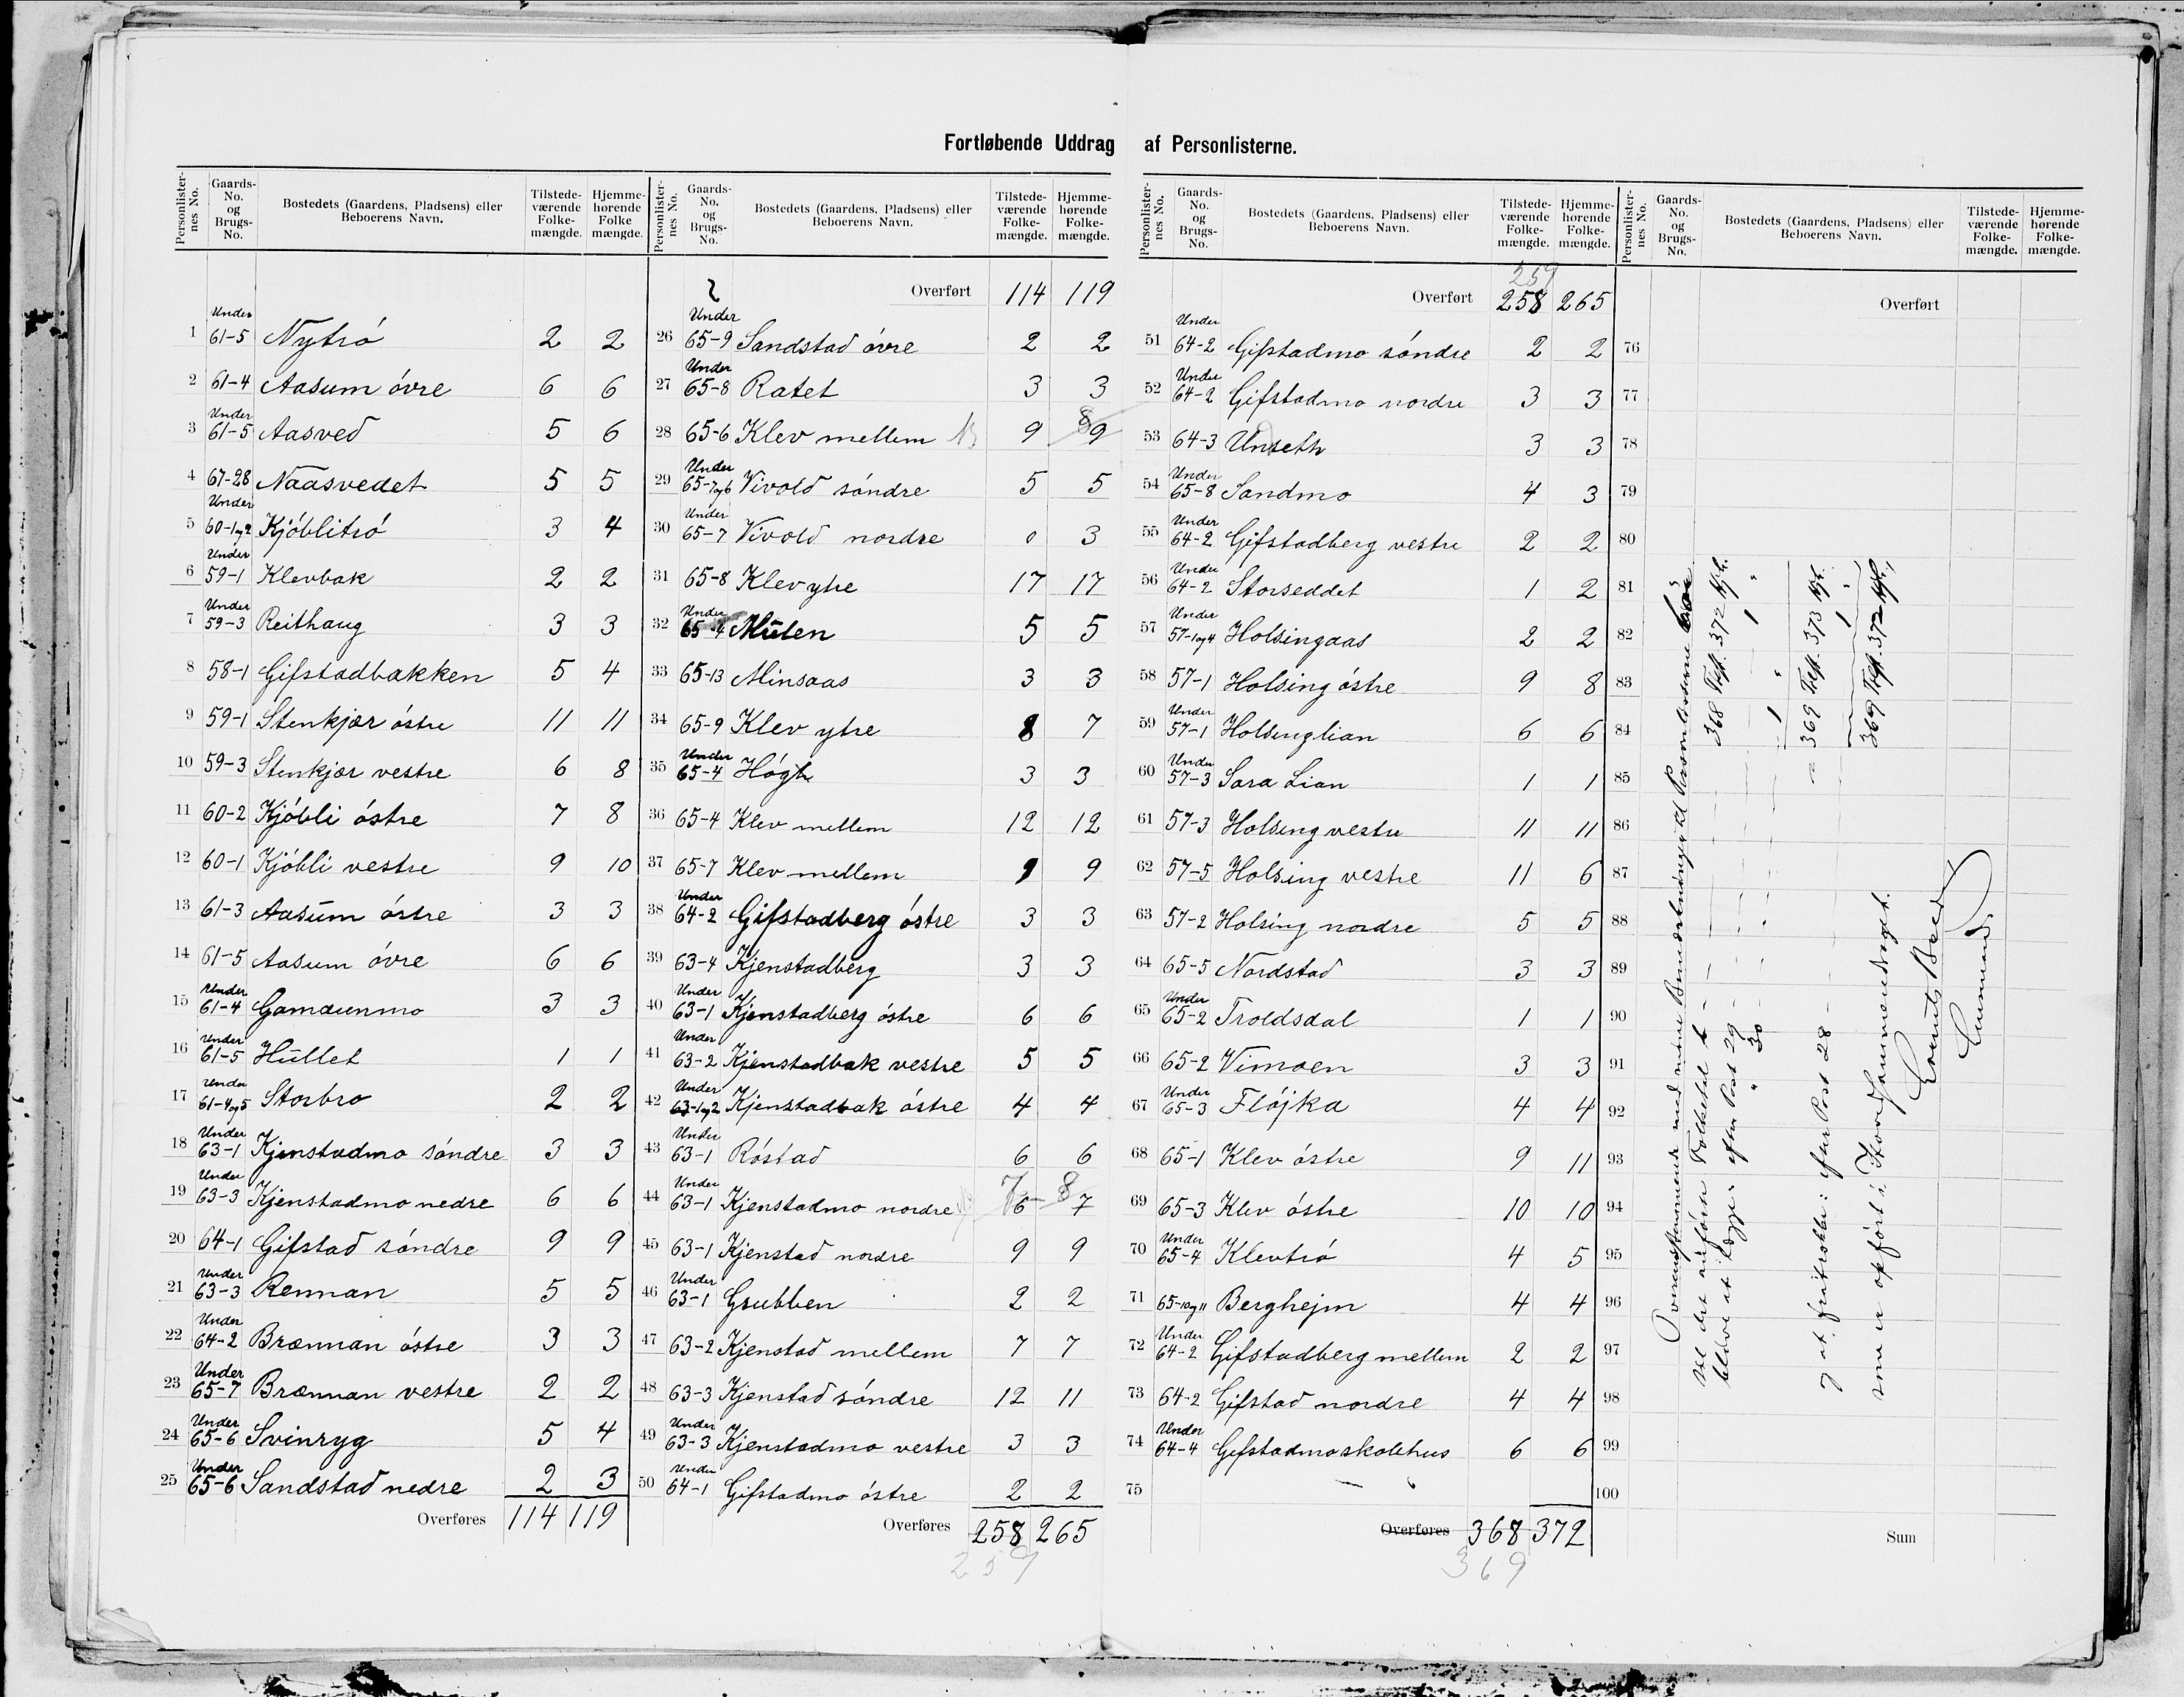 Fortløbende Uddrag af Personlisterne.
Personlister-nes No. Gaards-No. og Brugs-No. Bostedets (Gaardens, Pladsens) eller Beboerens Navn. Tilstede-værende Folke-mængde. Hjemme-hørende Folke mængde.
1 Under 61-5 Nytró 2 2
2 61-4 Aasum óvre 6 6
3 Under 61-5 Aasved 5 6
4 67-28 Naasvedet 5 5
5 Under 60-1og2 Kjóblitró 3 4
6 Under 59-1 Klevbak 2 2
7 Under 59-3 Reithaug 3 3
8 58-1 Gifstadbakken 5 4
9 59-1 Stenkjær óstre 11 11
10 59-3 Stenkjær vestre 6 8
11 60-2 Kjóbli óstre 7 8
12 60-1 Kjóbli vestre 9 10
13 61-3 Aasūm óstre 3 3
14 61-5 Aasum óvre 6 6
15 Under 61-4 Gamaunmo 3 3
16 Under 61-5 Hūllet 1 1
17 Under 61-4og5 Storbro 2 2
18 Under 63-1 Kjenstadmo sóndre 3 3
19 Under 63-3 Kjenstadmo nedre 6 6
20 64-1 Gifstad sóndre 9 9
21 Under 63-3 Rennan 5 5
22 Under 64-2 Brænnan óstre 3 3
23 Under 65-7 Brænnan vestre 2 2
24 Under 65-6 Svinryg 5 4
25 Under 65-6 Sandstad nedre 2 3
Overføres 114 119
Personlister-nes No. Gaards-No. og Brugs-No. Bostedets (Gaardens, Pladsens) eller Beboerens Navn. Tilstede-værende Folke-mængde. Hjemme-hørende Folke-mængde.
Overført 114 119
26 Under 65-9 Sandstad óvre 2 2
27 Under 65-8 Ratet 3 3
28 65-6 Klev mellem 9 8 9
29 Under 65-7og6 Vivold sóndre 5 5
30 Under 65-7 Vivold nordre 0 3
31 65-8 Klev ytre 17 17
32 Under 65-4 Mūlen 5 5
33 65-13 Minsaas 3 3
34 65-9 Klev ytre 8 7
35 Under 65-4 Hógli 3 3
36 65-4 Klev mellem 12 12
37 65-7 Klev mellem 9 9
38 Under 64-2 Gifstadberg óstre 3 3
39 63-4 Kjenstadberg 3 3
40 Under 63-1 Kjenstadberg óstre 6 6
41 Under 63-2 Kjenstadbak vestre 5 5
42 Under 63-1og2 Kjenstadbak óstre 4 4
43 Under 63-1 Róstad 6 6
44 Under 63-1 Kjenstadmo nordre 7 6 8 7
45 63-1 Kjenstad nordre 9 9
46 Under 63-1 Grubben 2 2
47 63-2 Kjenstad mellem 7 7
48 63-3 Kjenstad sóndre 12 11
49 Under 63-3 Kjenstadmo vestre 3 3
50 Under 64-1 Gifstadmo óstre 2 2
Overføres 258 265
259
Personlister-nes No. Gaards-No. og Brugs-No. Bostedets (Gaardens, Pladsens) eller Beboerens Navn. Tilstede-værende Folke-mængde. Hjemme-hørende Folke-mængde.
259
Overført 258 265
51 Under 64-2 Gifstadmo sóndre 2 2
52 Under 64-2 Gifstadmo nordre 3 3
53 64-3 Unseth 3 3
54 Under 65-8 Sandmo 4 3
55 Under 64-2 Gifstadberg vestre 2 2
56 Under 64-2 Storseddet 1 2
57 Under 57-1og4 Holsingaas 2 2
58 57-1 Holsing óstre 9 8
59 Under 57-1 Holsinglian 6 6
60 Under 57-3 Sara Lian 1 1
61 57-3 Holsing vestre 11 11
62 57-5 Holsing vestre 11 6
63 57-2 Holsing nordre 5 5
64 65-5 Nordstad 3 3
65 Under 65-2 Troldsdal 1 1
66 65-2 Vimoen 3 3
67 Under 65-3 Flójka 4 4
68 65-1 Klev óstre 9 11
69 65-3 Klev óstre 10 10
70 Under 65-4 Klevtró 4 5
71 65-10og11 Berghejm 4 4
72 Under 64-2 Gifstadberg mellem 2 2
73 64-2 Gifstad nordre 4 4
74 Under 64-4 Gifstadmoskolehus 6 6
75
Overføres 368 372
369
Personlister-nes No. Gaards-No. og Brugs-No. Bostedets (Gaardens, Pladsens) eller Beboerens Navn. Tilstede-værende Folke-mængde. Hjemme-hørende Folke-mængde.
Overført
76
77
78
79
80
81
82
83
84
85
86
87
88
89
90
91
92
93
94
95
96
97
98
99
100
Sum
Overensstemmende med mine Bemærkninger til Personlisterne
det anførte Folketal t 368 Tsf. 372 Hjh.
blive at lægge: efter Post 29 1
" 30 1
369 Tsf. 373 Hjh.
at fratrække: efter Post 28 1
369 Tsf. 372 Hjh.,
som er opført i Hovedsammendraget.